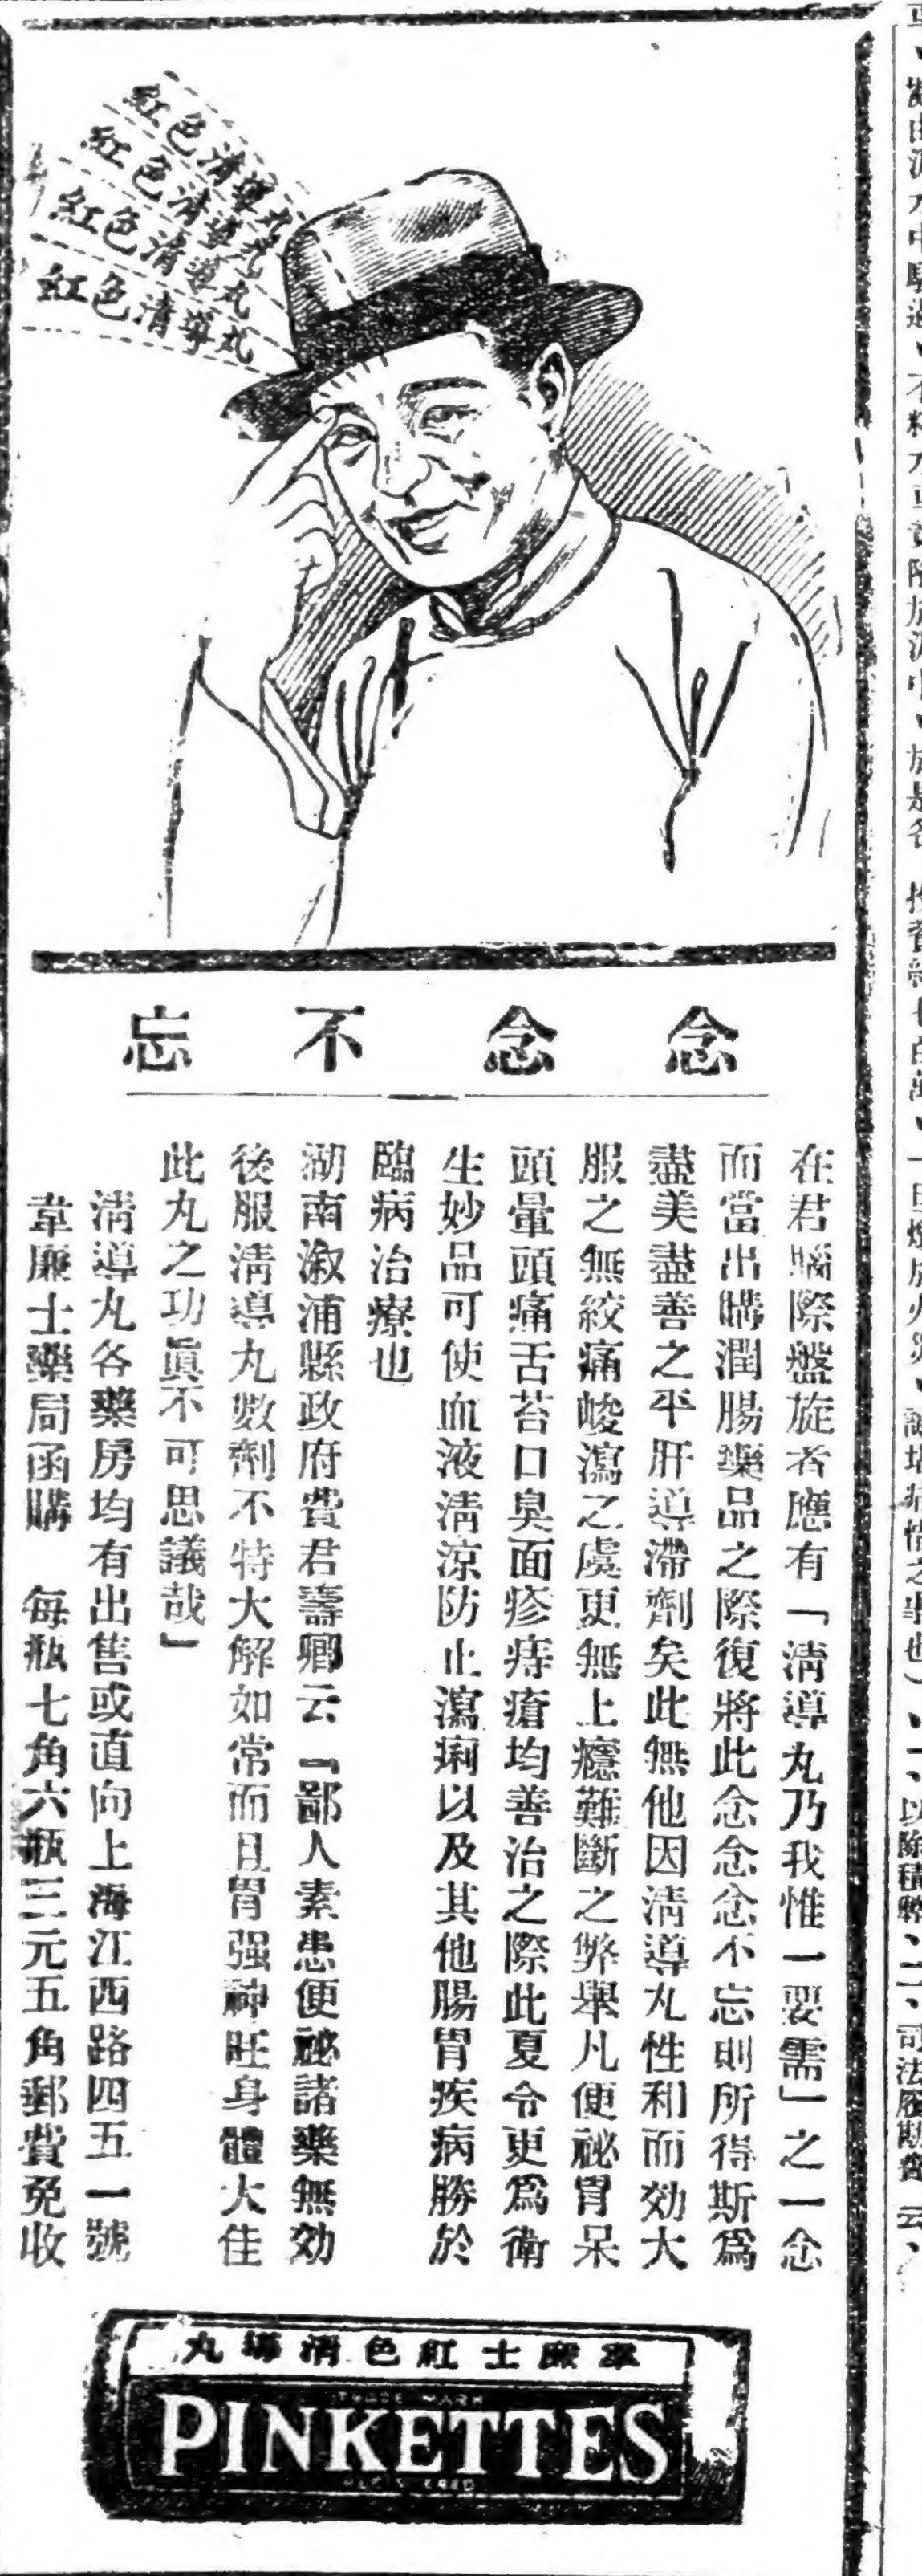 紅色清導丸
紅色清導丸
紅色清導丸
紅色清導丸
念念不忘
在君腦際盤旋者應有「清導丸乃我惟一要需」之一念
而當出購潤腸藥品之際復將此念念念不忘則所得斯爲
盡美盡善之平肝導滯劑矣此無他因清導丸性和而効大
服之無絞痛峻瀉之虞更無上癮難斷之弊舉凡便祕胃呆
頭暈頭痛舌苔口臭面疹痔瘡均善治之際此夏令更爲衛
生妙品可使血液清涼防止瀉痢以及其他腸胃疾病勝於
臨病治療也
湖南溆浦縣政府費君壽卿云『鄙人素患便祕諸藥無効
後服清導丸數劑不特大解如常而且胃强神旺身體大佳
此丸之功眞不可思議哉』
清導丸各藥房均有出售或直向上海江西路四五一號
韋廉士藥局函購 每瓶七角六瓶三元五角郵費免收
韋廉士紅色清導丸
TRADE MARK
PINKETTES
REGISTERED